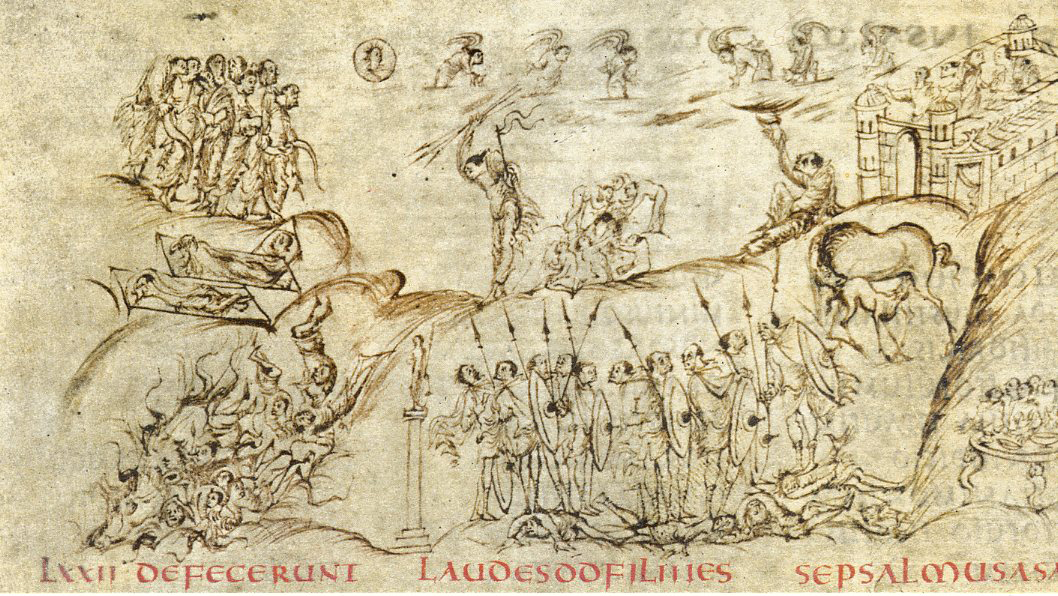 LXXII DEFECERUNT LAUDES DD FILII IES SEPSALMUS ASA